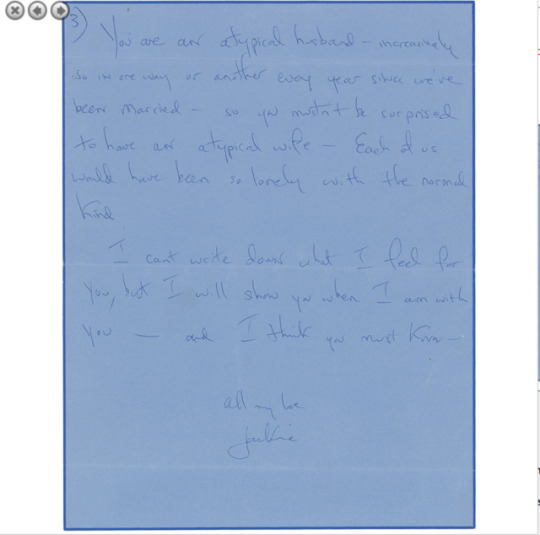 3) You are an atypical husband – increasingly
so in one way or another every year since we've
been married – so you mustn't be surprised
to have an atypical wife – Each of us
would have been so lonely with the normal
kind
I cant write down what I feel for
you, but I will show you when I am with
you — and I think you must know –
all my love
Jackie